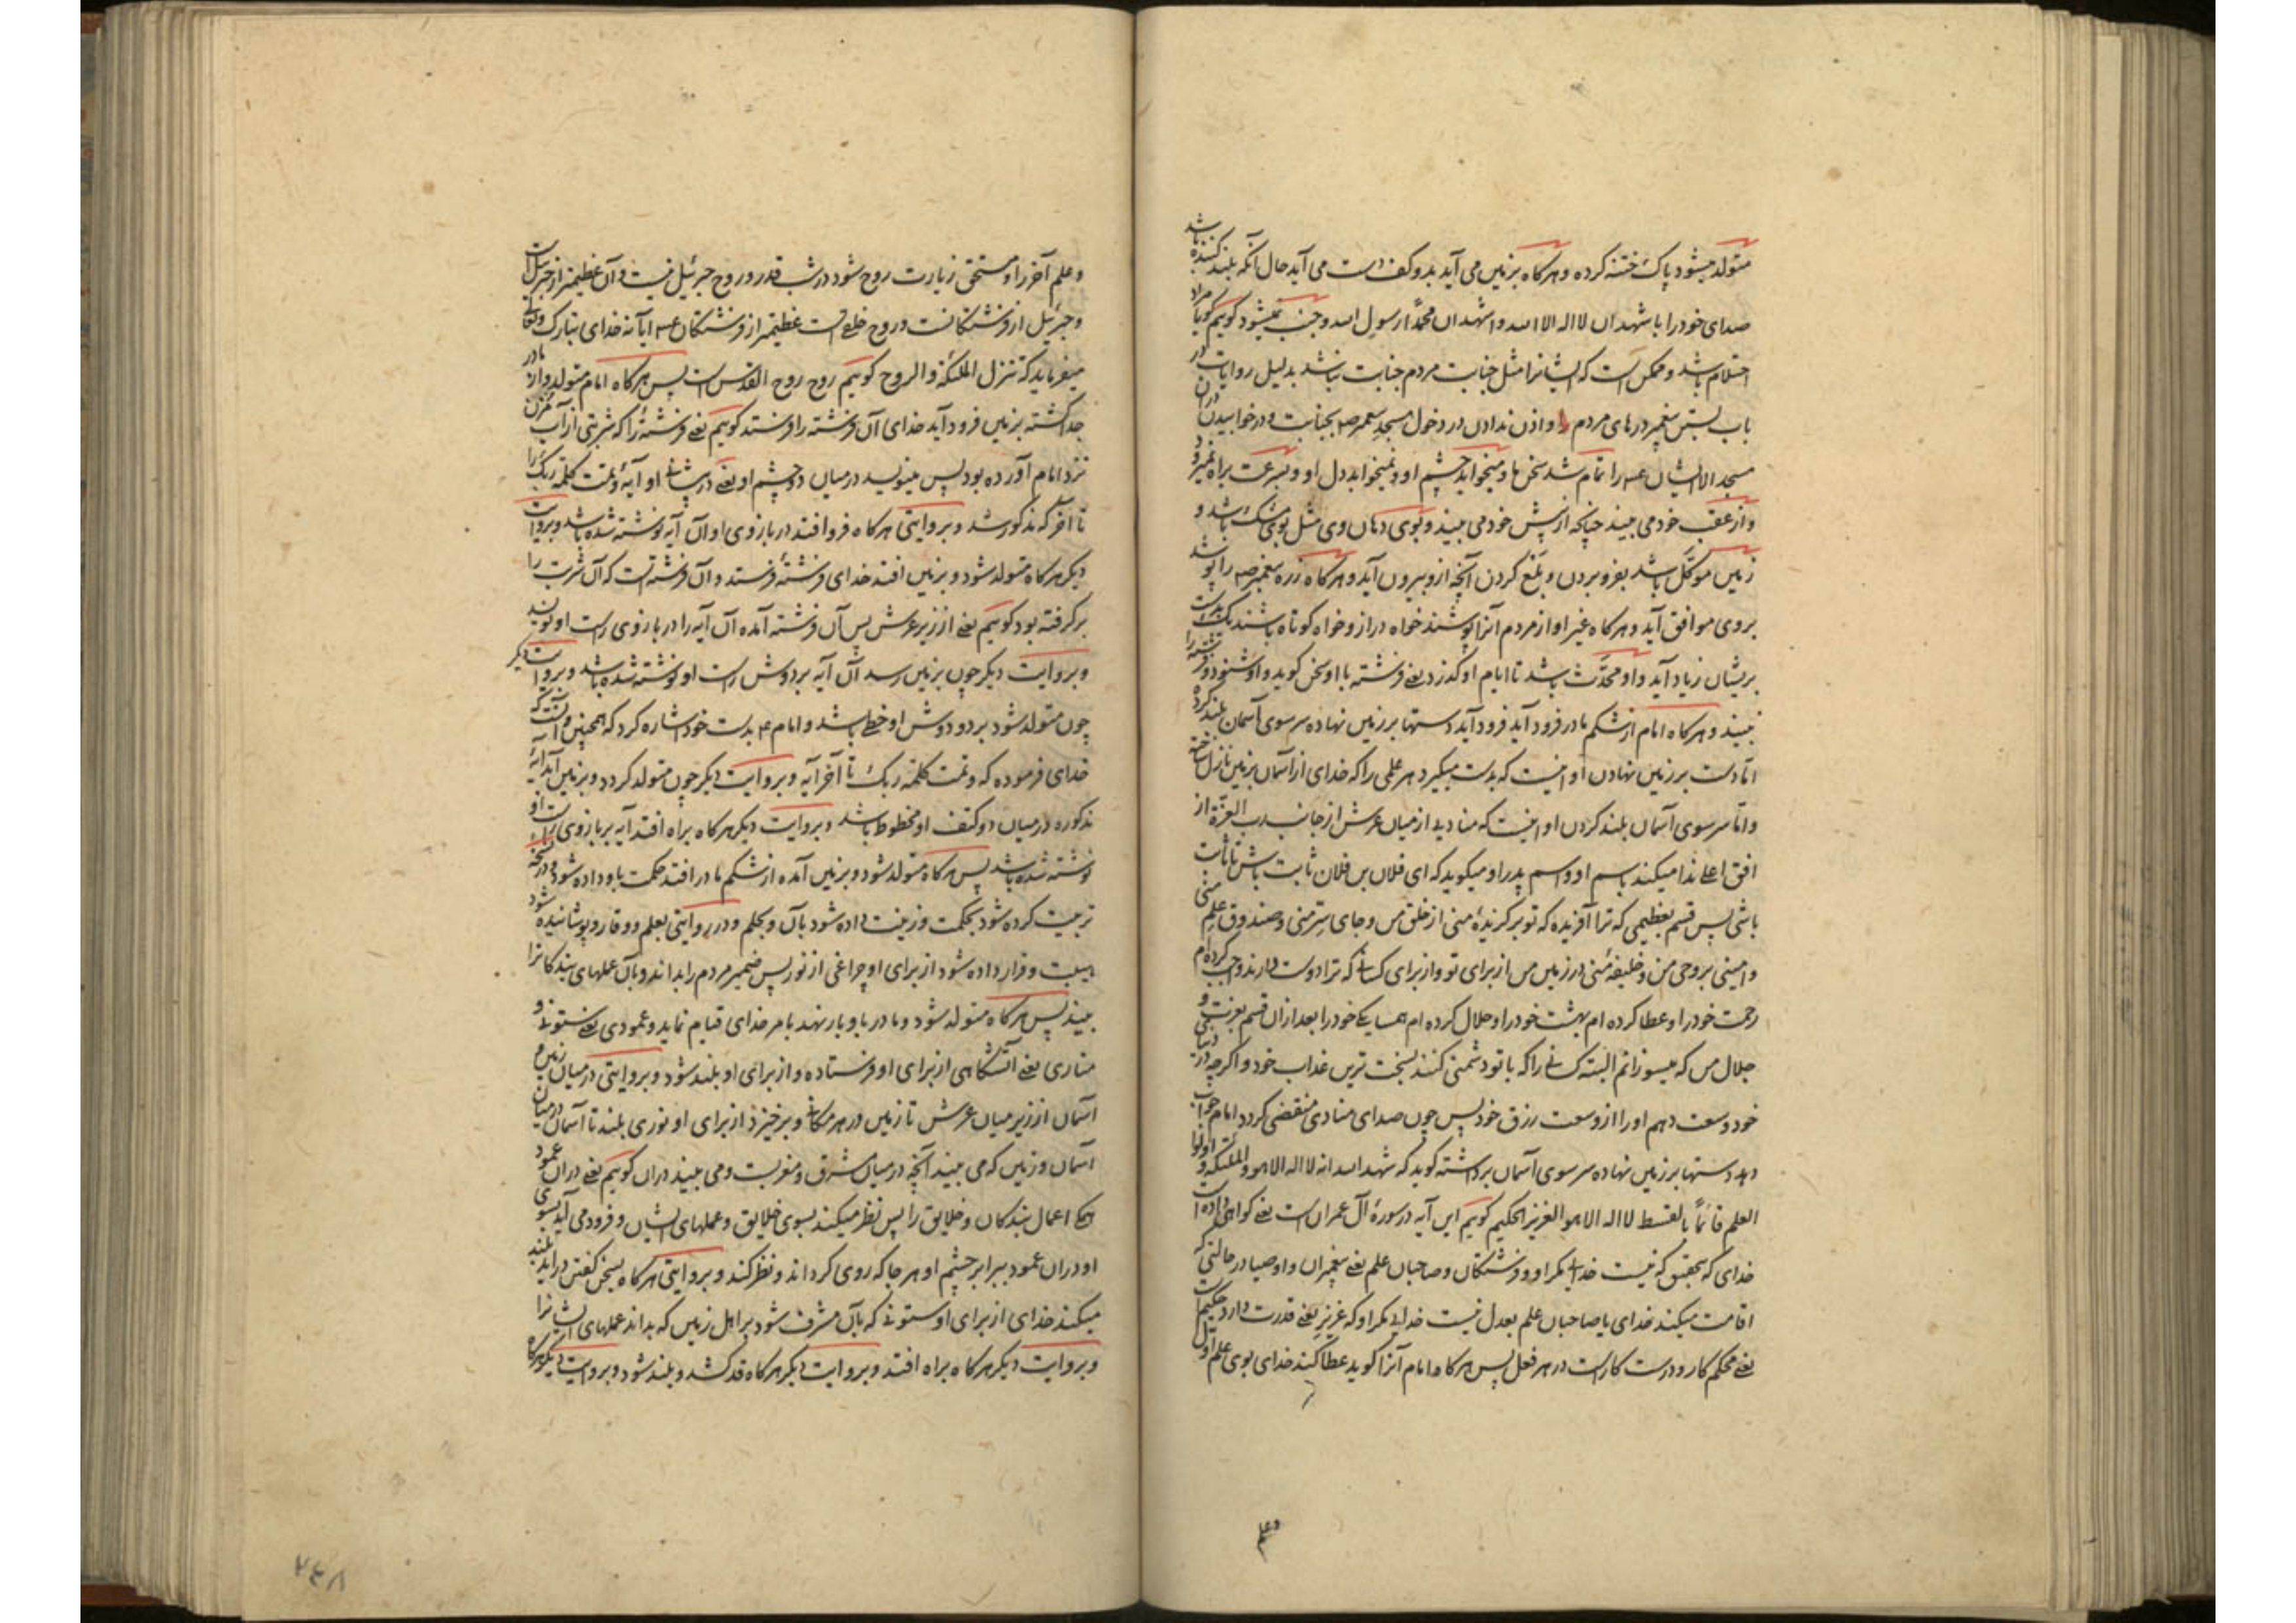 متولد میشود پاک ختنه کرده و هرگاه بزمین می آید بدو کف دست می آید حال آنکه بلند کننده باشد
صدای خود را با شهد ان لا اله الا الله و اشهد ان محمدا رسول الله و جنب نمیشود کوییم کویا مراد
احتلام باشد و ممکن است که ایشانرا مثل جنابت مردم جنابت نباشد بدلیل روایات در
باب بستن پیغمبر درهای مردم را و اذن ندادن در دخول مسجد پیغمبر صه بجنابت و در خوابیدن در آن
مسجد الا ایشان عه را تمام شد سخن ما و میخوابد چشم او و نمیخوابد دل او و بسرعت براه نمیرود
و از عقب خود می بیند چنانچه از پیش خود می بیند و بوی دهان وی مثل بوی مشک باشد و
زمین موکل باشد بفرو بردن و بلع کردن آنچه ازو بیرون آید و هرگاه زره پیغمبر صه را پوشد
بروی موافق آید و هرگاه غیر او از مردم آنرا پوشند خواه دراز و خواه کوتاه باشند یک بدست
بریشان زیاد آید و او محدث باشد تا ایام او کذرد یعنے فرشته با او سخن کوید و او شنود و فرشته را
نبیند و هرگاه امام از شکم مادر فرود آید فرود آید دستها بر زمین نهاده سر سوی آسمان بلند کرده
اما دست بر زمین نهادن او اینست که بدست میکیرد هر علمی را که خدای از آسمان بزمین نازل ساخته
و اما سر سوی آسمان بلند کردن او اینست که منادیی از میان عرش از جانب رب العزة از
افق اعلے ندا میکند باسم او و اسم پدر او میکوید که ای فلان بن فلان ثابت باش تا ثابت
باشی پس قسم بعظیمی که ترا آفریده که تو برکزیدهٔ منی از خلق من و جای سر منی و صندوق علم منی
و امینی بر وحی من و خلیفهٔ منی در زمین من از برای تو و از برای کسانے که ترا دوست دارند واجب کرده ام
رحمت خود را و عطا کرده ام بهشت خود را و حلال کرده ام همسایکے خود را بعد از ان قسم بعزت و
جلال من که میسوزانم البته کسانے را که با تو دشمنی کنند بسخت ترین عذاب خود و اکرچه در دنیای
خود وسعت دهم او را از وسعت رزق خود پس چون صدای منادی منقضی کردد امام جواب
دهد دستها بر زمین نهاده سر سوی آسمان برداشته کوید که شهد الله انه لا اله الا هو و الملئکة و اولوا
العلم قائما بالقسط لا اله الا هو العزیز الحکیم کوییم این آیه در سورهٔ آل عمران است یعنے کواهی داده است
خدای که بتحقیق که نیست خدایے مکر او و فرشتکان و صاحبان علم یعنے پیغمبران و اوصیا در حالتی که
اقامت میکند خدای یا صاحبان علم بعدل نیست خدایے مکر او که عزیز یعنے قدرت دارد حکیم است
یعنے محکم کار و درست کار است در هر فعل پس هرگاه امام آنرا کوید عطا کند خدای بوی علم اول
و علم
و علم آخر را و مستحق زیارت روح شود در شب قدر و روح جبرئیل نیست و آن عظیمتر از جبرئیل است
و جبرئیل از فرشتکانست و روح خلقے است عظیمتر از فرشتکان عه ایا نه خدای تبارک و تعالی
میفرماید که تنزل الملئکة و الروح کوییم روح روح القدس است پس هرگاه امام متولد و از مادر
جدا کشته بزمین فرود آید خدای آن فرشته را فرستد کوییم یعنے فرشتهٔ را که شربتی از آب مزن
نزد امام آورده بود پس مینویسد در میان دو چشم او یعنے در پیشانے او آیهٔ و تمت کلمة ربک را
تا آخر که مذکور شد و بروایتی هرگاه فرو افتد در بازوی او آن آیه نوشته شده باشد و بروایت
دیکر هرگاه متولد شود و بزمین افتد خدای فرشتهٔ فرستد و آن فرشته است که آن شربت را
برکرفته بود کوییم یعنے از زیر عرش پس آن فرشته آمده آن آیه را در بازوی راست او نویسد
و بروایت دیکر چون بزمین رسد آن آیه بر دوش راست او نوشته شده باشد و بروایت دیکر
چون متولد شود بر دو دوش او خطے باشد و امام ع بدست خود اشاره کرد که همچنین و آنست که
خدای فرموده که و تمت کلمة ربک تا آخر آیه و بروایت دیکر چون متولد کردد و بزمین آید آیهٔ
مذکوره در میان دو کتف او مخطوط باشد و بروایت دیکر هرگاه براه افتد آیه بر بازوی راست او
نوشته شده باشد پس هرگاه متولد شود و بزمین آمده از شکم مادر افتد حکمت باو داده شود و در نسخهٔ
تربیت کرده شود بحکمت و زینت داده شود بآن و بحلم و در روایتی بعلم و وقار و پوشانیده شود
هیبت و قرار داده شود از برای او چراغی از نور پس ضمیر مردم را بداند و بآن عملهای بندکانرا
بیند پس هرگاه متولد شود و مادر باو بار نهد بامر خدای قیام نماید و عمودی یعنے ستونے و
مناری یعنے آتشکاهی از برای او فرستاده و از برای او بلند شود و بروایتی در میان زمین و
آسمان از زیر میان عرش تا زمین در هر مکانے و برخیزد از برای او نوری بلند تا آسمان در میان
آسمان و زمین که می بیند آنچه در میان مشرق و مغربست و می بیند دران کوییم یعنے دران عمود
همکے اعمال بندکان و خلایق را پس نظر میکند بسوی خلایق و عملهای ایشان و فرود می آید بسوی
او دران عمود ببرابر چشم او هر جا که روی کرداند و نظر کند و بروایتی هرگاه بسخن کفتن دراید بلند
میکند خدای از برای او ستونے که بآن مشرف شود بر اهل زمین که بداند عملهای ایشانرا
و بروایت دیکر هرگاه براه افتد و بروایت دیکر هرگاه قد کشد و بلند شود و بروایت دیکر هرگاه